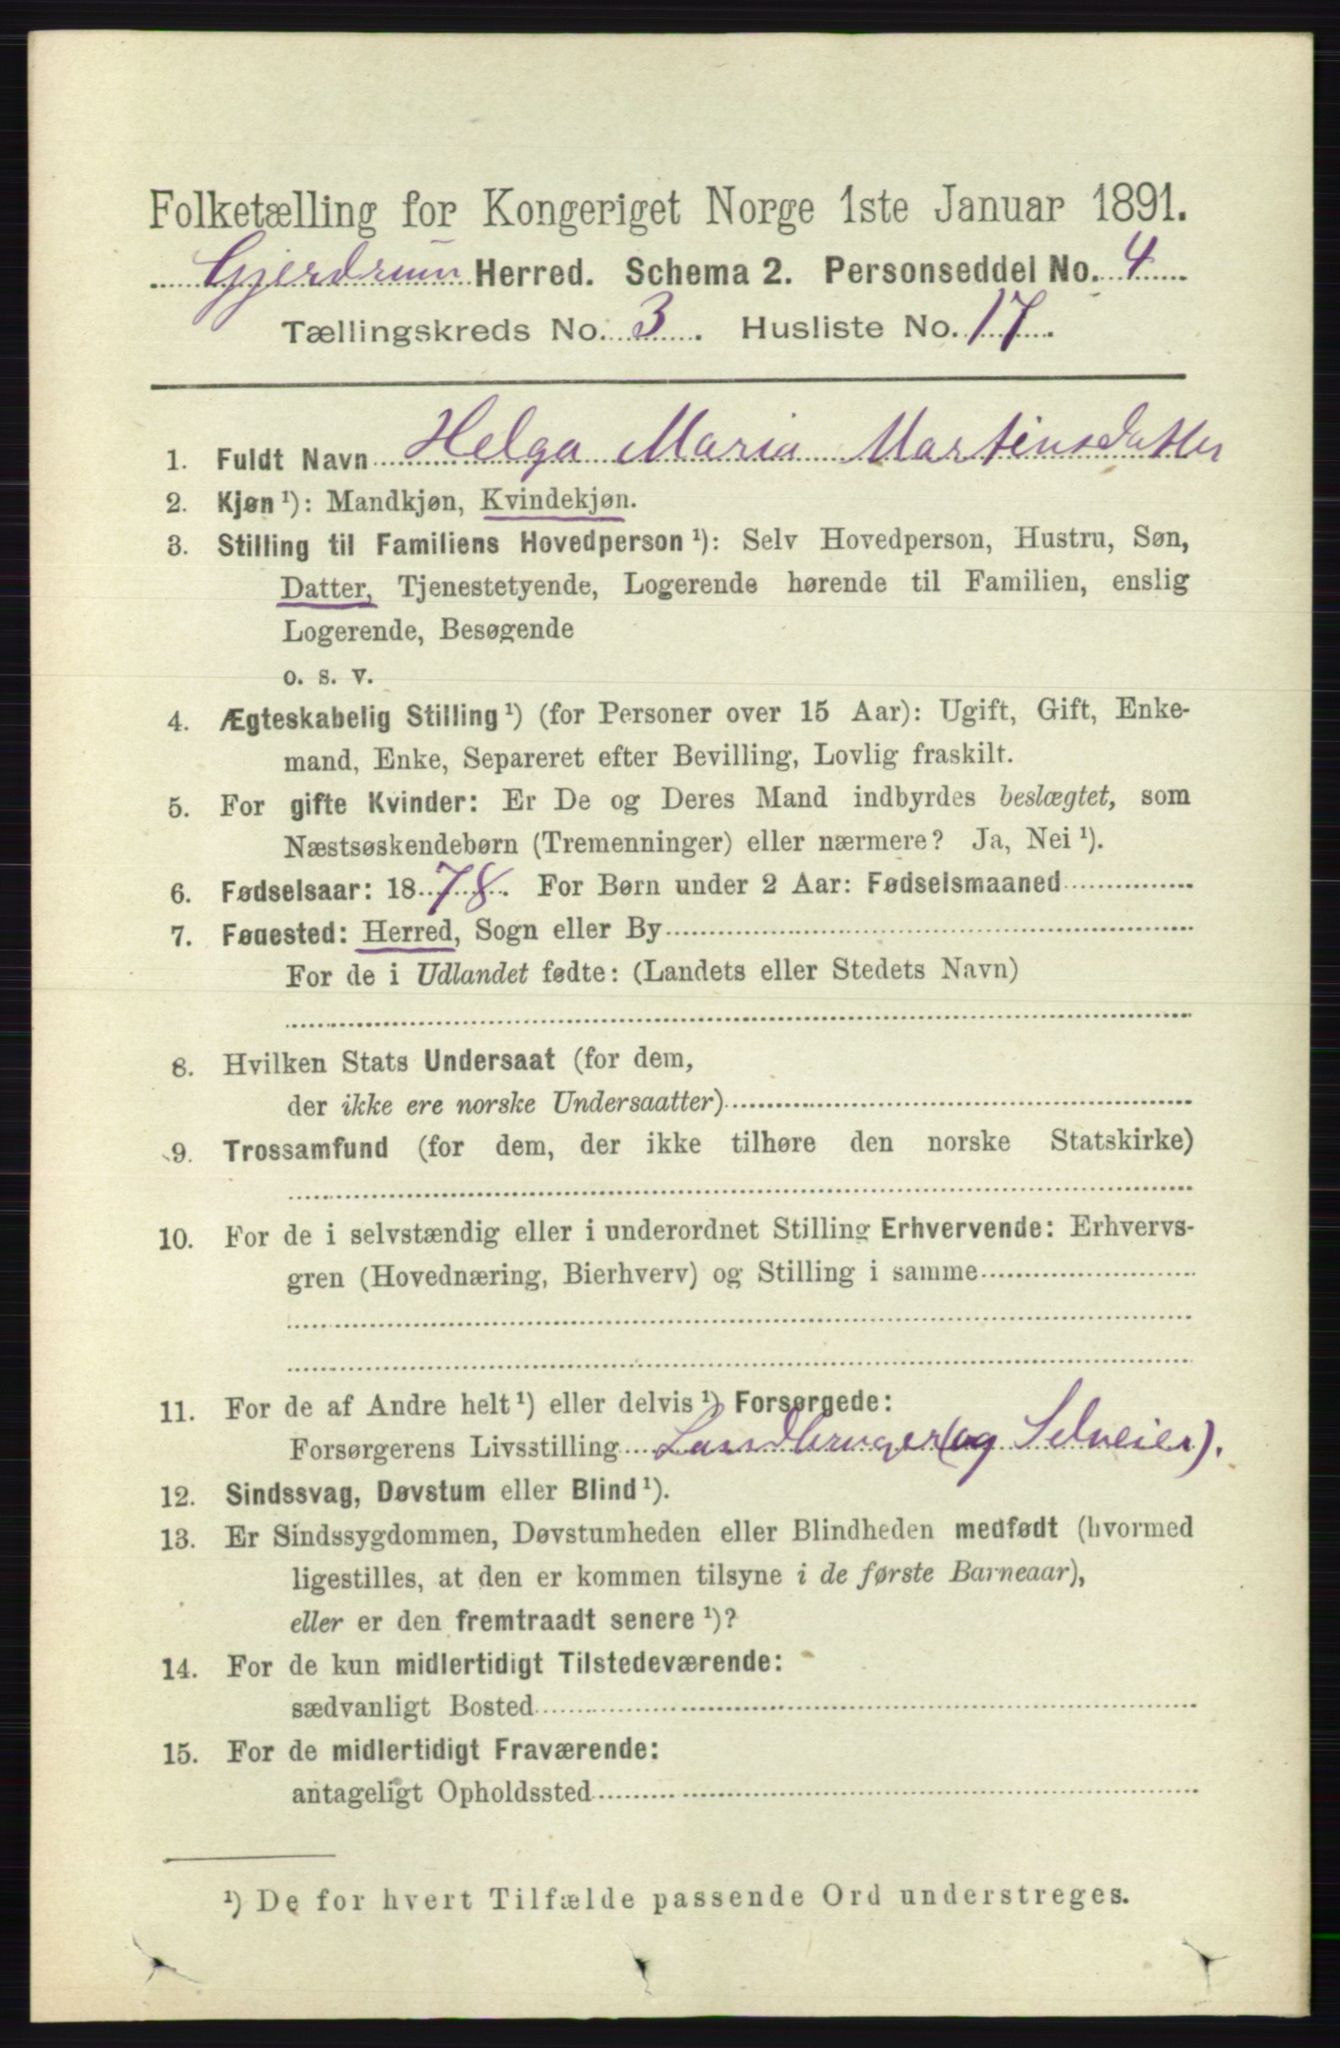 Folketælling for Kongeriget Norge 1ste Januar 1891.
Gjerdrum Herred. Schema 2. Personseddel No. 4
Tællingskreds No. 3. Husliste No. 17.
1. Fuldt Navn Helga Maria Martinsdatter
2. Kjøn ¹): Mandkjøn, Kvindekjøn.
3. Stilling til Familiens Hovedperson ¹): Selv Hovedperson, Hustru, Søn,
Datter, Tjenestetyende, Logerende hørende til Familien, enslig
Logerende, Besøgende
o. s. v.
4. Ægteskabelig Stilling ¹) (for Personer over 15 Aar): Ugift, Gift, Enke-
mand, Enke, Separeret efter Bevilling, Lovlig fraskilt.
5. For gifte Kvinder: Er De og Deres Mand indbyrdes beslægtet, som
Næstsøskendebørn (Tremenninger) eller nærmere? Ja, Nei ¹).
6. Fødselsaar: 1878. For Børn under 2 Aar: Fødselsmaaned
7. Føuested: Herred, Sogn eller By
For de i Udlandet fødte: (Landets eller Stedets Navn)
8. Hvilken Stats Undersaat (for dem,
der ikke ere norske Undersaatter)
9. Trossamfund (for dem, der ikke tilhøre den norske Statskirke)
10. For de i selvstændig eller i underordnet Stilling Erhvervende: Erhvervs-
gren (Hovednæring, Bierhverv) og Stilling i samme
11. For de af Andre helt ¹) eller delvis ¹) Forsørgede:
Forsørgerens Livsstilling Landbruger (og Selveier).
12. Sindssvag, Døvstum eller Blind ¹).
13. Er Sindssygdommen, Døvstumheden eller Blindheden medfødt (hvormed
ligestilles, at den er kommen tilsyne i de første Barneaar),
eller er den fremtraadt senere ¹)?
14. For de kun midlertidigt Tilstedeværende:
sædvanligt Bosted
15. For de midlertidigt Fraværende:
antageligt Opholdssted
¹) De for hvert Tilfælde passende Ord understreges.